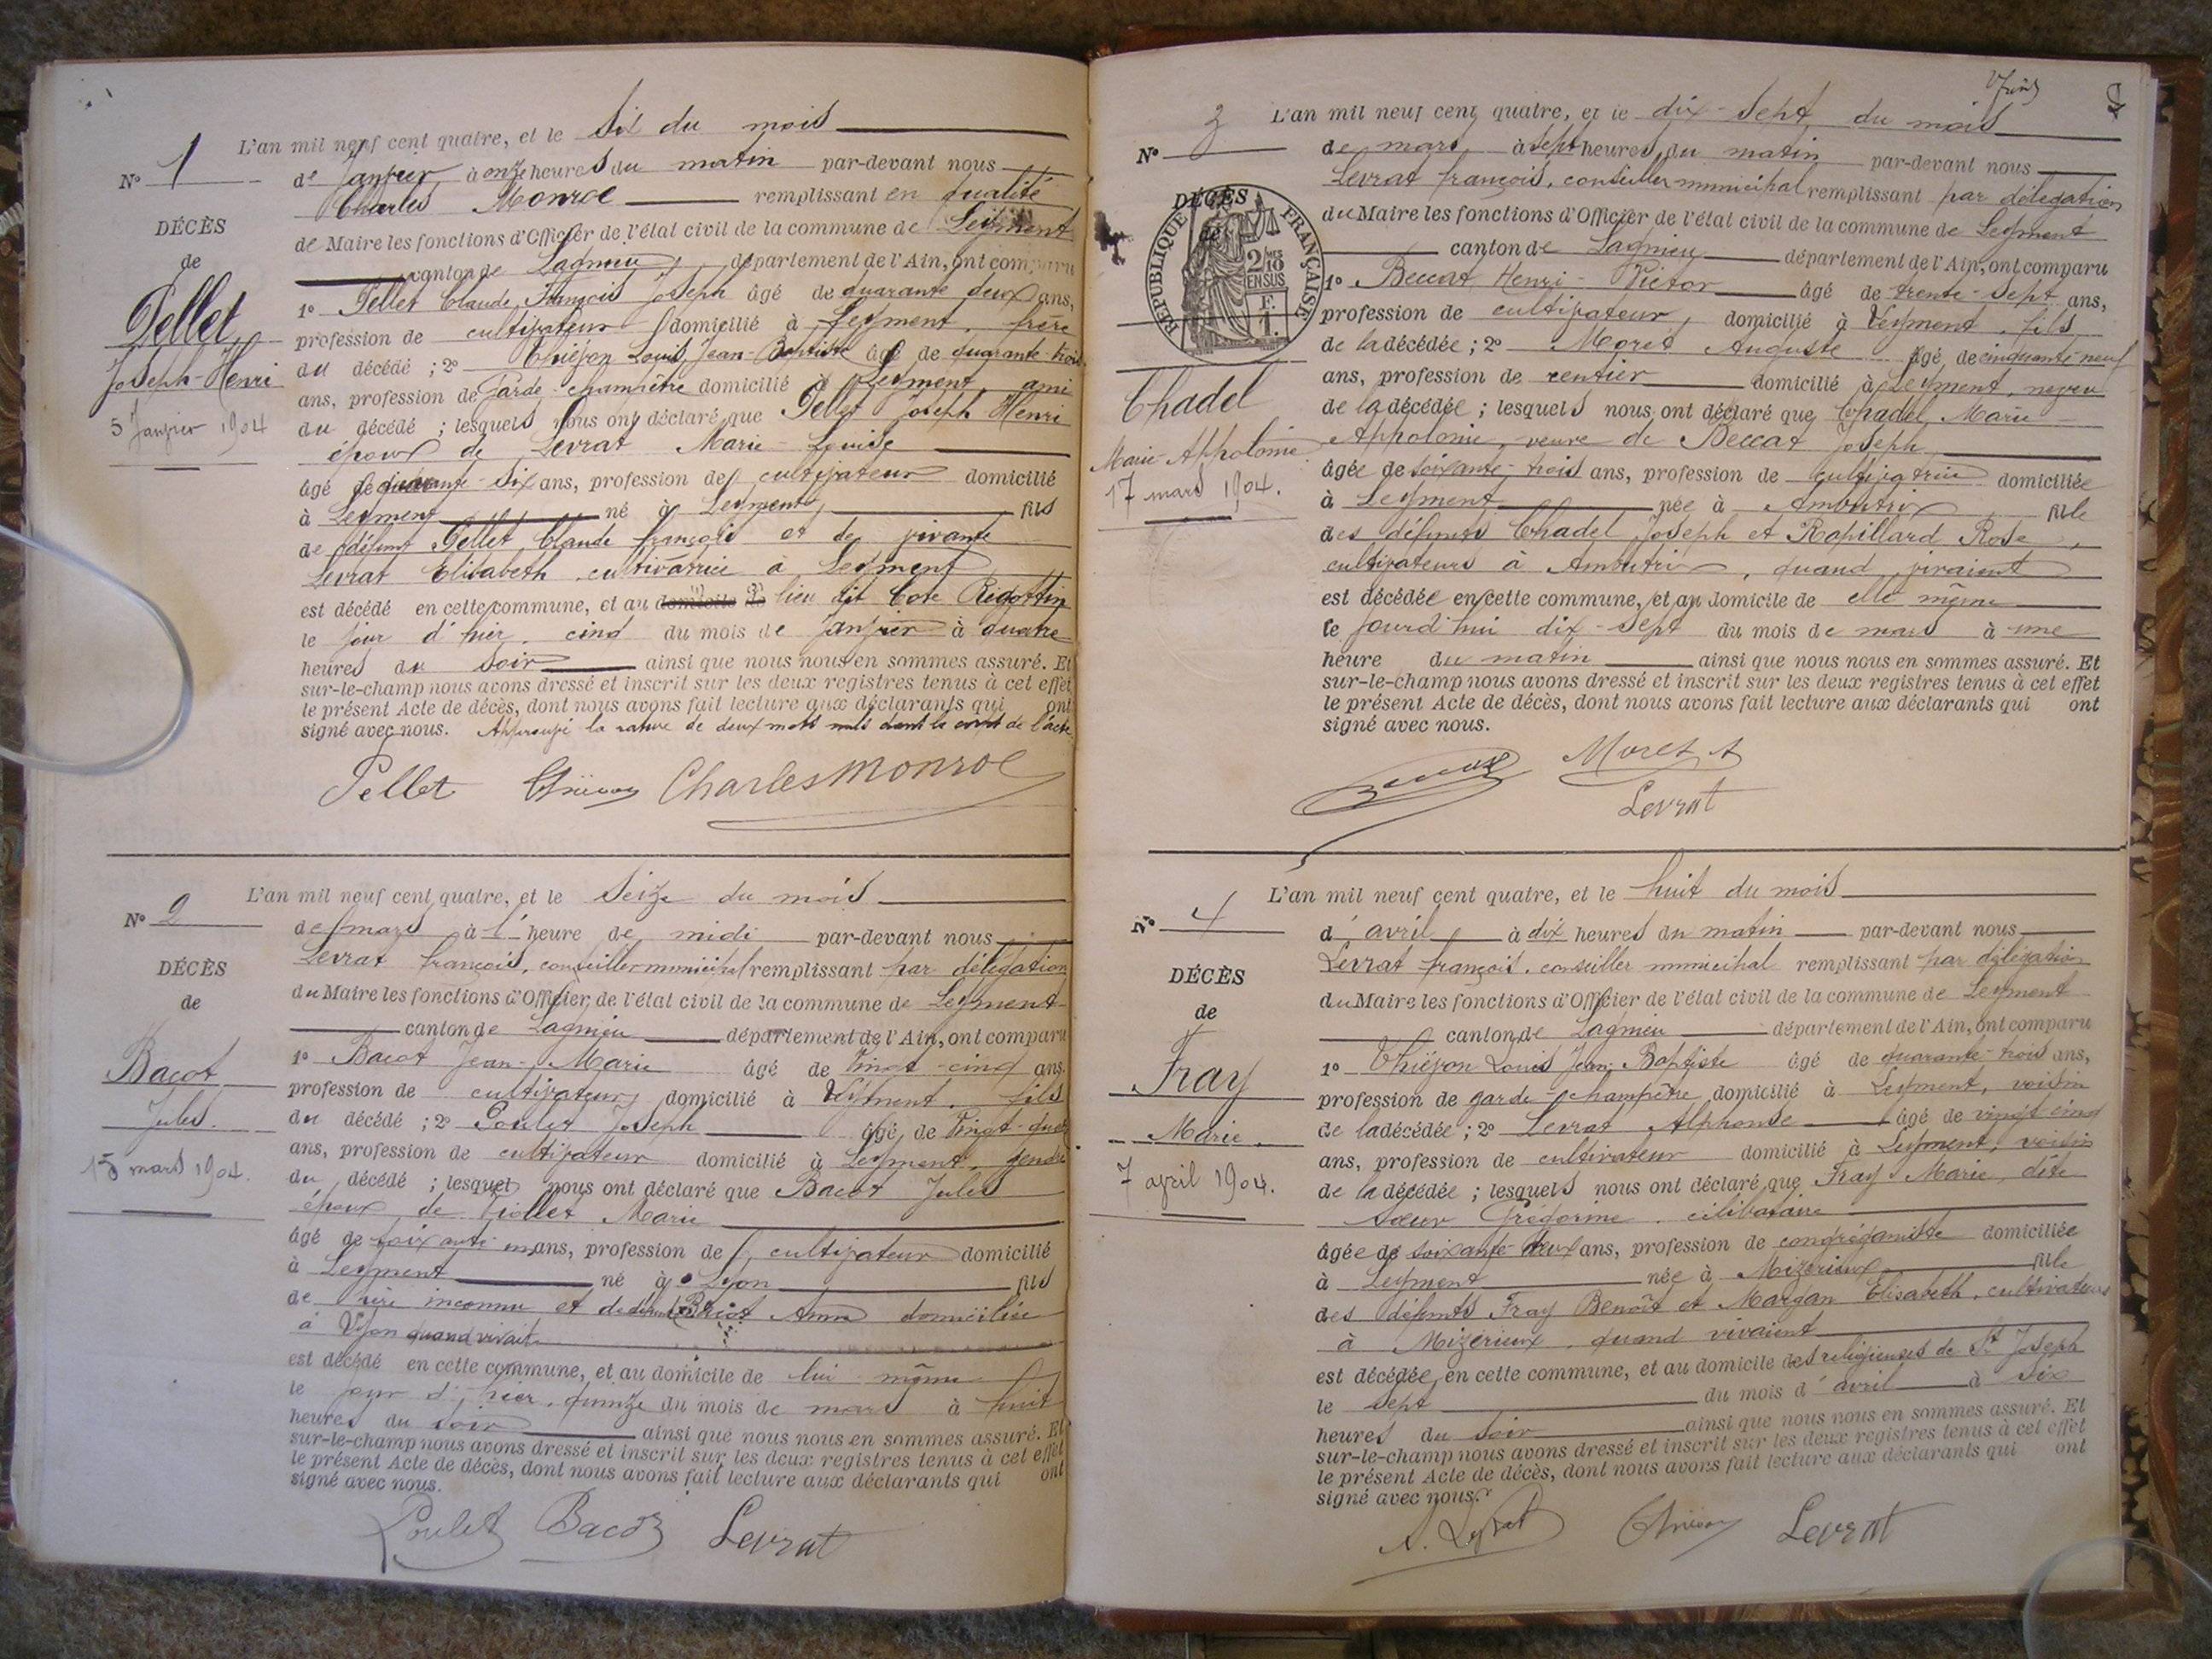 L'an mil neuf cent quatre, et le Six du mois
N° 1
de Janvier à onze heures du matin par-devant nous
Charles Monroe remplissant en qualité
DÉCÈS
de Maire les fonctions d'Officier de l'état civil de la commune de Leyment
de
canton de Lagnieu, département de l'Ain, ont comparu
Pellet
1° Pellet Claude François Joseph âgé de quarante deux ans,
profession de cultivateur domicilié à Leyment, frère
Joseph-Henri
du décédé ; 2° Thiévon Louis Jean-Baptiste âgé de quarante-trois
ans, profession de Garde-champêtre domicilié à Leyment, ami
5 Janvier 1904
du décédé ; lesquels nous ont déclaré que Pellet Joseph Henri
époux de Levrat Marie-Louise
âgé de quarante-six ans, profession de cultivateur domicilié
à Leyment né à Leyment, fils
de défunt Pellet Claude François et de vivante
Levrat Elisabeth, cultivatrice à Leyment
est décédé en cette commune, et au domicile de lieu dit Cote Rigottin
le jour d'hier, cinq du mois de janvier à quatre
heures du soir ainsi que nous nous en sommes assuré. Et
sur-le-champ nous avons dressé et inscrit sur les deux registres tenus à cet effet
le présent Acte de décès, dont nous avons fait lecture aux déclarants qui ont
signé avec nous. Approuvé la rature de deux mots nuls dans le corps de l'acte.
Pellet Thiévon Charles Monroe
L'an mil neuf cent quatre, et le Seize du mois
N° 2
de mars à l'heure de midi par-devant nous
Levrat François, conseiller municipal remplissant par délégation
DÉCÈS
du Maire les fonctions d'Officier de l'état civil de la commune de Leyment
de
canton de Lagnieu département de l'Ain, ont comparu
Bacot
1° Bacot Jean-Marie âgé de Vingt-cinq ans,
profession de cultivateur, domicilié à Leyment, fils
Jules.
du décédé ; 2° Poulet Joseph âgé de Vingt-
ans, profession de cultivateur domicilié à Leyment, gendre
15 mars 1904.
du décédé ; lesquels nous ont déclaré que Bacot Jules
époux de Viollet Marie
âgé de soixante ans, profession de cultivateur domicilié
à Leyment né à Lyon fils
de père inconnu et de défunte Bacot Anna domiciliée
à Lyon quand vivait
est décédé en cette commune, et au domicile de lui même
le jour d'hier, quinze du mois de mars à huit
heures du soir ainsi que nous nous en sommes assuré. Et
sur-le-champ nous avons dressé et inscrit sur les deux registres tenus à cet effet
le présent Acte de décès, dont nous avons fait lecture aux déclarants qui ont
signé avec nous.
Poulet Bacot Levrat
L'an mil neuf cent quatre, et le dix-sept du mois
N° 3
de mars à sept heures du matin par-devant nous
Levrat François, conseiller municipal remplissant par délégation
DÉCÈS
de
du Maire les fonctions d'Officier de l'état civil de la commune de Leyment
canton de Lagnieu département de l'Ain, ont comparu
RÉPUBLIQUE FRANÇAISE
2/10 EN SUS
1° Beccat Henri-Victor âgé de trente-sept ans,
profession de cultivateur, domicilié à Leyment, fils
de la décédée ; 2° Moret Auguste âgé de cinquante-neuf
ans, profession de rentier domicilié à Leyment, neveu
Chadel
de la décédée ; lesquels nous ont déclaré que Chadel Marie-
Appolonie, veuve de Beccat Joseph
Marie-Appolonie
âgée de soixante-trois ans, profession de cultivatrice domiciliée
17 mars 1904.
à Leyment née à Ambutrix fille
des défunts Chadel Joseph et Rapillard Rose,
cultivateurs à Ambutrix, quand vivaient
est décédée en cette commune, et au domicile de elle même
le jourd'hui dix-sept du mois de mars à une
heure du matin ainsi que nous nous en sommes assuré. Et
sur-le-champ nous avons dressé et inscrit sur les deux registres tenus à cet effet
le présent Acte de décès, dont nous avons fait lecture aux déclarants qui ont
signé avec nous.
Moret A
Levrat
L'an mil neuf cent quatre, et le huit du mois
N° 4
d'avril à dix heures du matin par-devant nous
Levrat François, conseiller municipal remplissant par délégation
DÉCÈS
du Maire les fonctions d'Officier de l'état civil de la commune de Leyment
de
canton de Lagnieu département de l'Ain, ont comparu
Fray
1° Thiévon Louis Jean-Baptiste âgé de quarante-trois ans,
profession de garde-champêtre domicilié à Leyment, voisin
Marie.
de la décédée ; 2° Levrat Alphonse âgé de vingt cinq
ans, profession de cultivateur domicilié à Leyment, voisin
7 avril 1904.
de la décédée ; lesquels nous ont déclaré que Fray Marie, dite
Sœur Grégorine, célibataire
âgée de soixante-deux ans, profession de congréganiste domiciliée
à Leyment née à Mizérieux fille
des défunts Fray Benoît et Margan Elisabeth, cultivateurs
à Mizérieux, quand vivaient
est décédée en cette commune, et au domicile des religieuses de St Joseph
le sept du mois d'avril à six
heures du soir ainsi que nous nous en sommes assuré. Et
sur-le-champ nous avons dressé et inscrit sur les deux registres tenus à cet effet
le présent Acte de décès, dont nous avons fait lecture aux déclarants qui ont
signé avec nous.
A. Levrat Thiévon Levrat